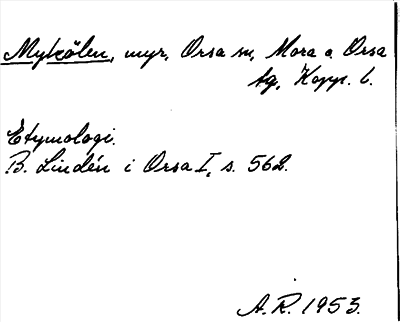 Mykölen, myr, Orsa sn, Mora o. Orsa
tg, Kopp. l.
Etymologi.
B. Lindén i Orsa I, s. 562.
A. R. 1953.